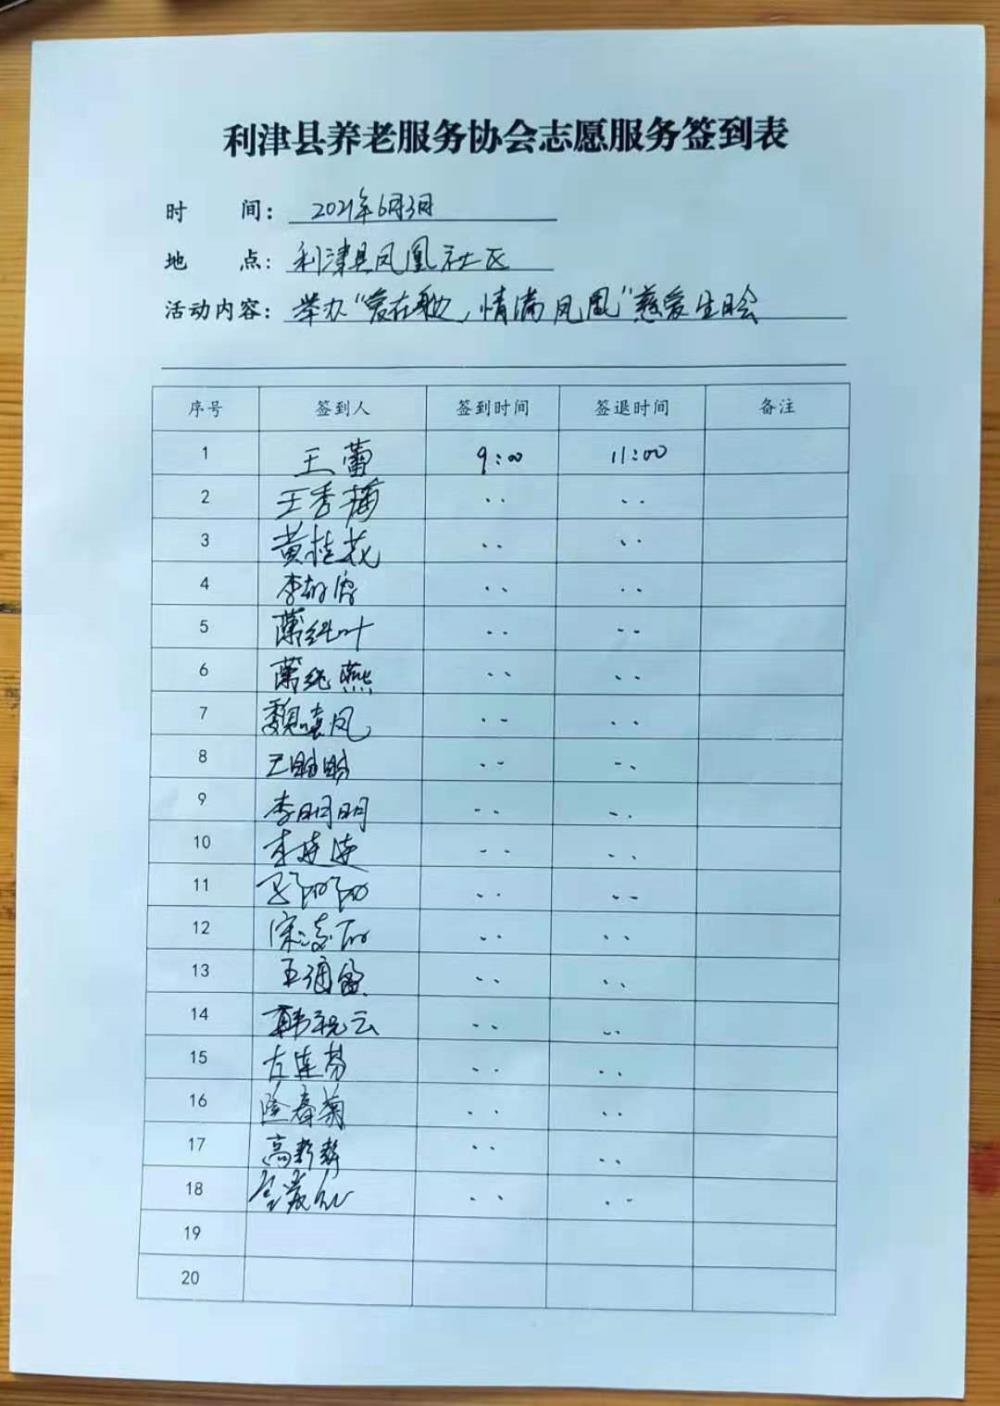 利津县养老服务协会志愿服务签到表
时 间: 2021年6月3日
地 点: 利津县凤凰社区
活动内容: 举办“爱在 ,情满凤凰”慈爱生日会
序号 签到人 签到时间 签退时间 备注
1 王蕾 9:00 11:00
2 王秀梅 .. ..
3 黄桂花 .. ..
4 李 .. ..
5 .. ..
6 燕 .. ..
7 魏 凤 .. ..
8 王 .. ..
9 李明明 .. ..
10 李连连 .. ..
11 .. ..
12 宋 .. ..
13 .. ..
14 韩祝云 .. ..
15 左连芬 .. ..
16 春菊 .. ..
17 高 .. ..
18 .. ..
19
20